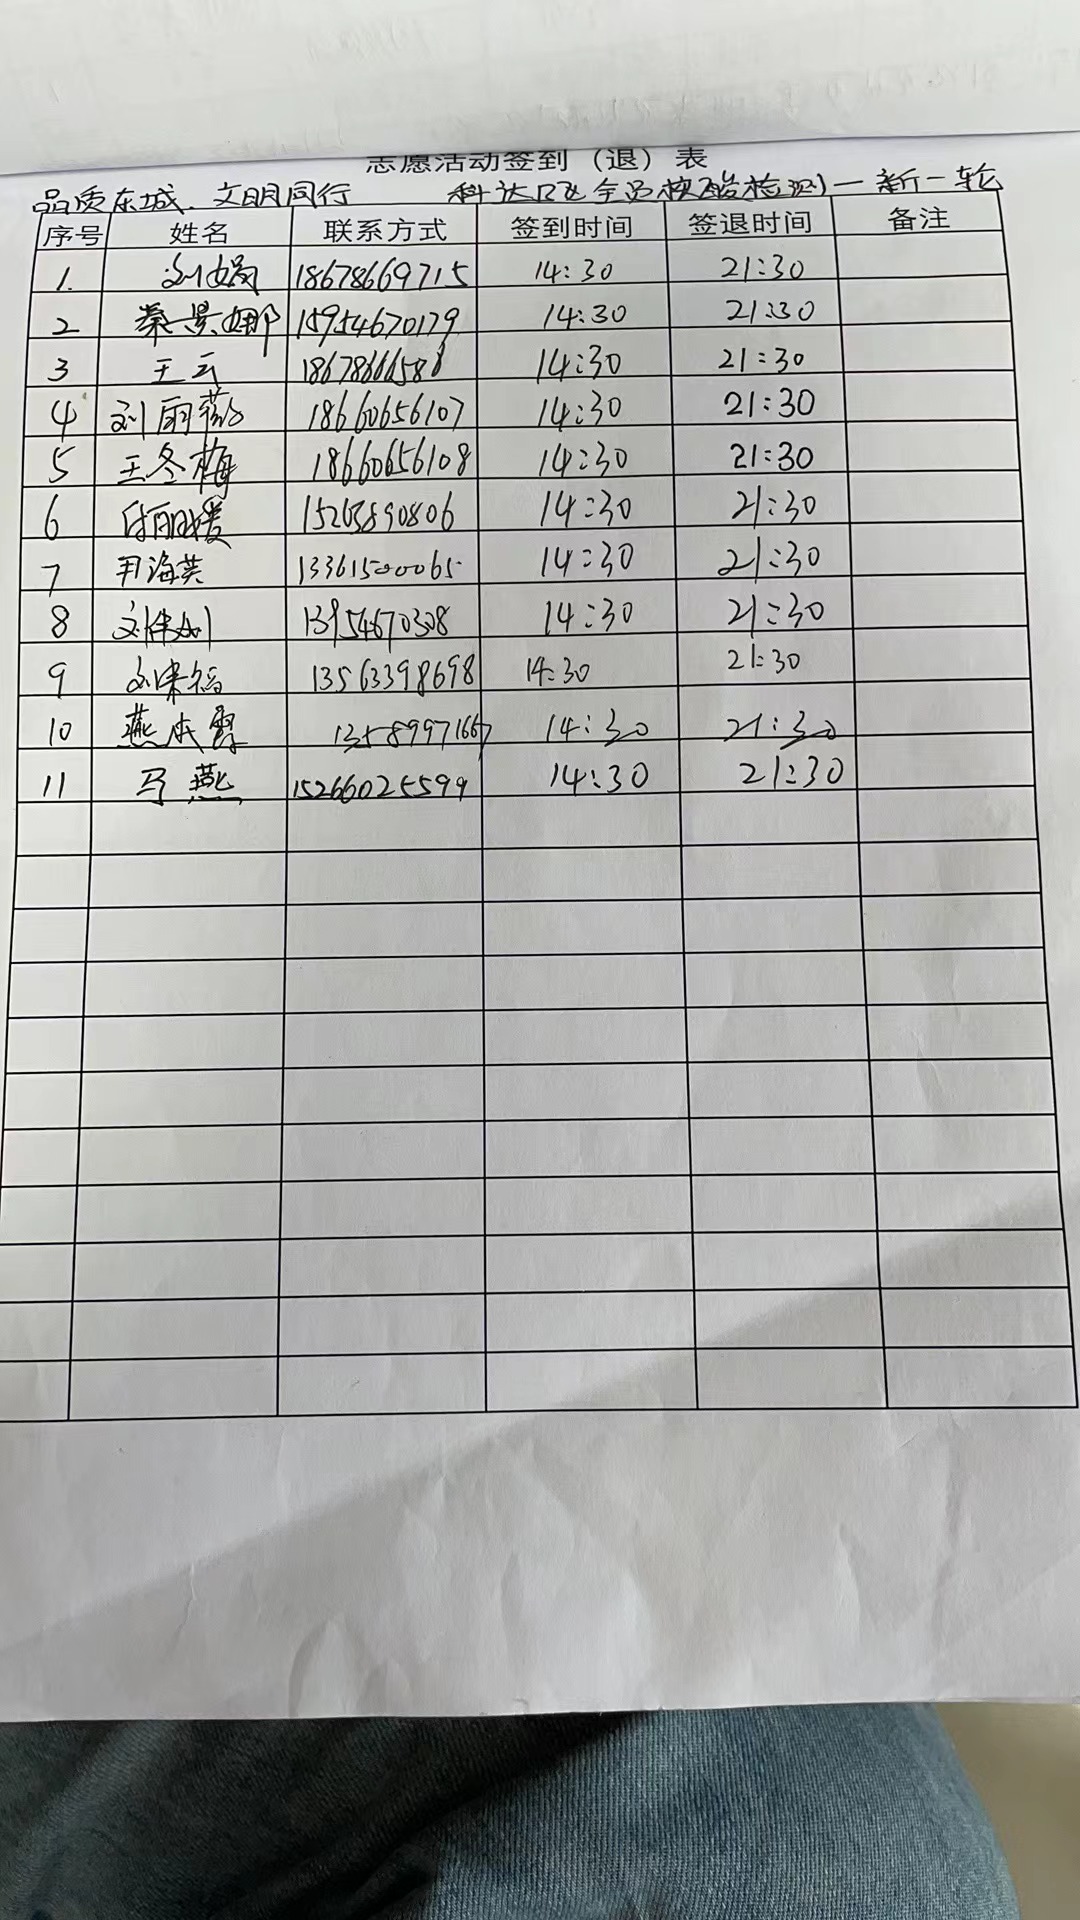 志愿活动签到（退）表
品质东城、文明同行 科达 全员核酸检测一新一轮
序号 姓名 联系方式 签到时间 签退时间 备注
1. 刘娟 18678669715 14:30 21:30
2 綦景娜 15954670179 14:30 21:30
3 王云 14:30 21:30
4 刘丽 18660656107 14:30 21:30
5 王冬梅 18660656108 14:30 21:30
6 付丽媛 15263890806 14:30 21:30
7 尹海英 13361500065 14:30 21:30
8 13954670308 14:30 21:30
9 13563398698 14:30 21:30
10 燕本霞 13589971667 14:30 21:30
11 马燕 15266025599 14:30 21:30